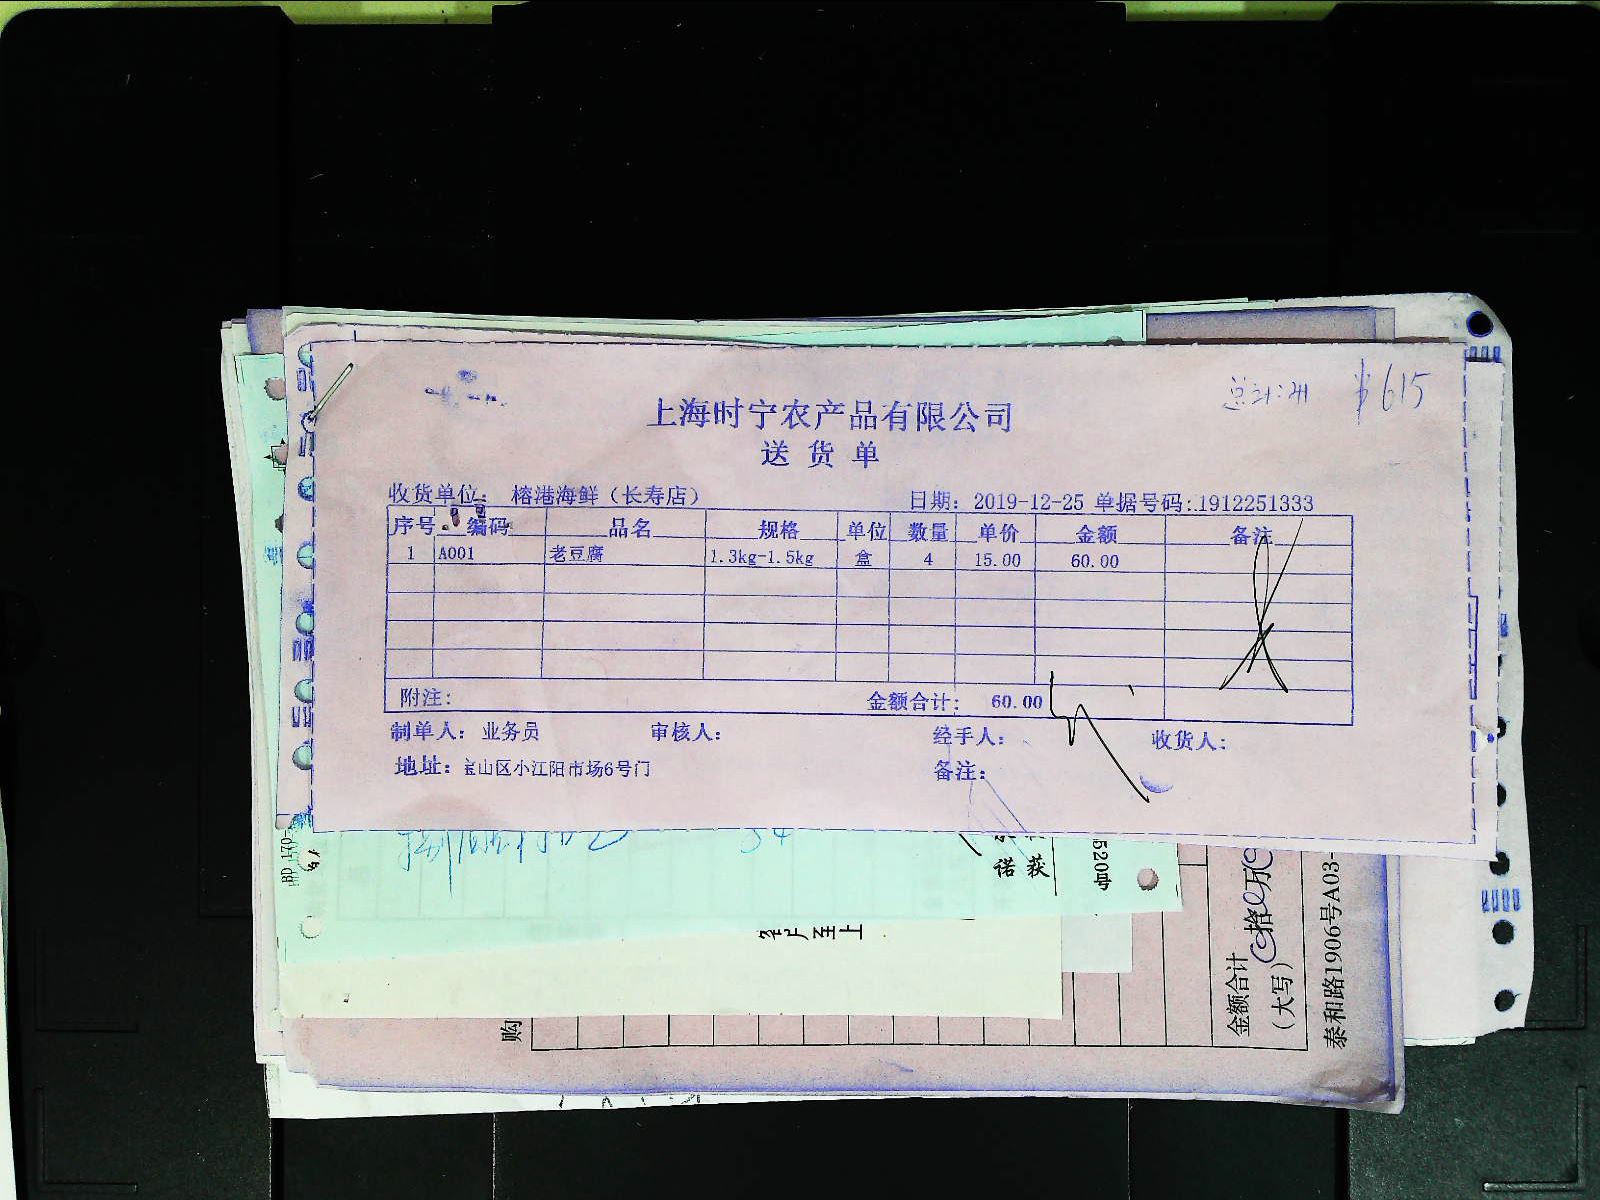 ¥615
上海时宁农产品有限公司
送货单
收货单位: 榕港海鲜（长寿店） 日期: 2019-12-25 单据号码: 1912251333
序号 编码 品名 规格 单位 数量 单价 金额 备注
1 A001 老豆腐 1.3kg-1.5kg 盒 4 15.00 60.00
附注: 金额合计: 60.00
制单人: 业务员 审核人: 经手人: 收货人:
地址: 宝山区小江阳市场6号门 备注:
诺 获
520号
金额合计
（大写）
拾 万
泰和路1906号A03-
购